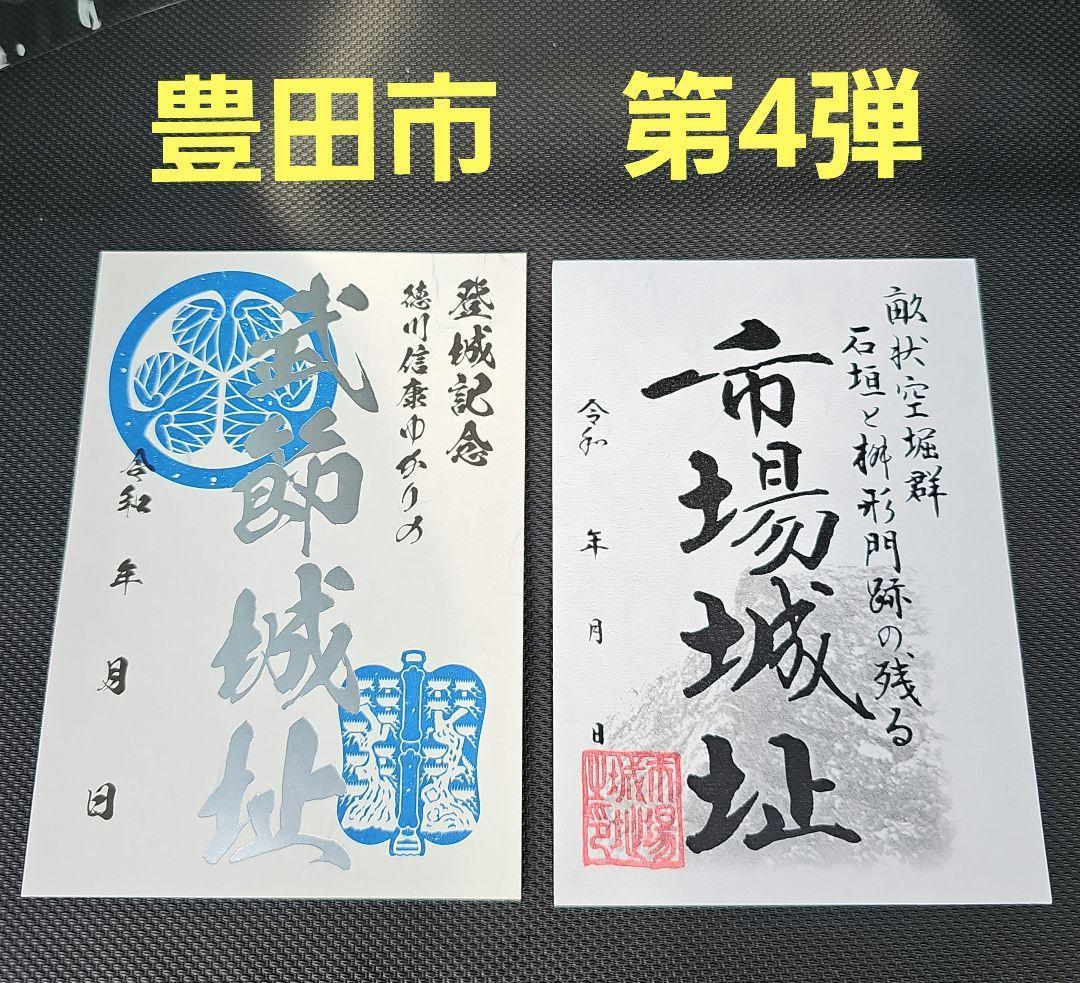 豊田市　第4弾
登城記念
徳川信康ゆかりの
武節城址
令和　年　月　日
畝状空堀群
石垣と桝形門跡の残る
市場城址
令和　年　月　日
市場
城址